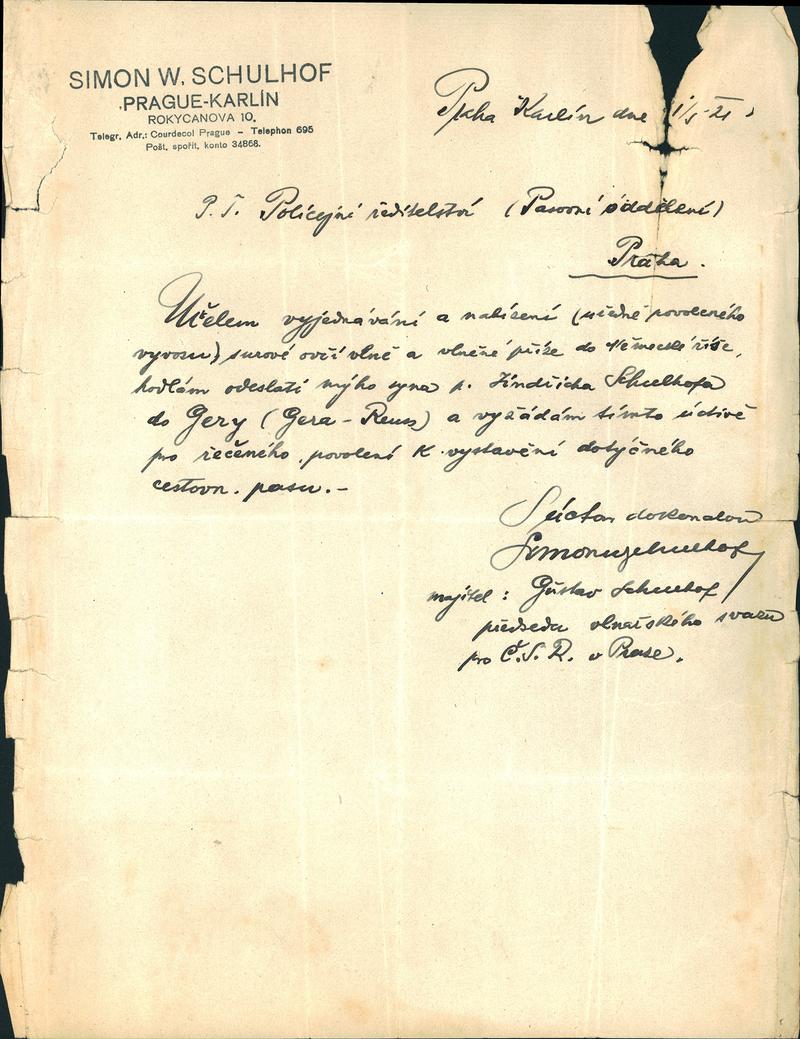 SIMON W. SCHULHOF
PRAGUE-KARLÍN
ROKYCANOVA 10.
Telegr. Adr.: Courdecol Prague – Telephon 695
Pošt. spořit. konto 34868.
Praha Karlín dne 1/5 21
P. T. Policejní ředitelství (Pasovní oddělení)
Praha.
Účelem vyjednávání a nabízení (úředně povoleného
vývozu) surové ovčí vlně a vlněné příze do Německé říše,
hodlám odeslati mýho syna p. Jindřicha Schulhofa
do Gery (Gera - Reuss) a vyžádám tímto uctivě
pro řečeného povolení k vystavění dotyčného
cestovn. pasu.-
S úctou dokonalou
Simon W Schulhof
majitel: Gustav Schulhof
předseda vlnařského svazu
pro Č.S.R. v Praze.